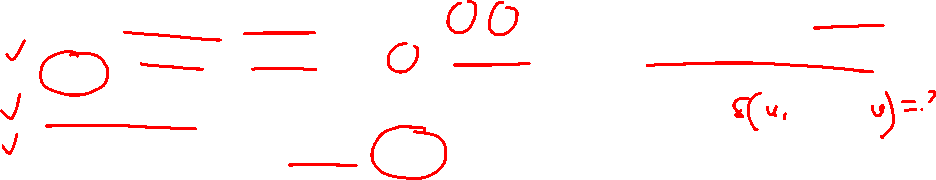 δ(u, v) = ?